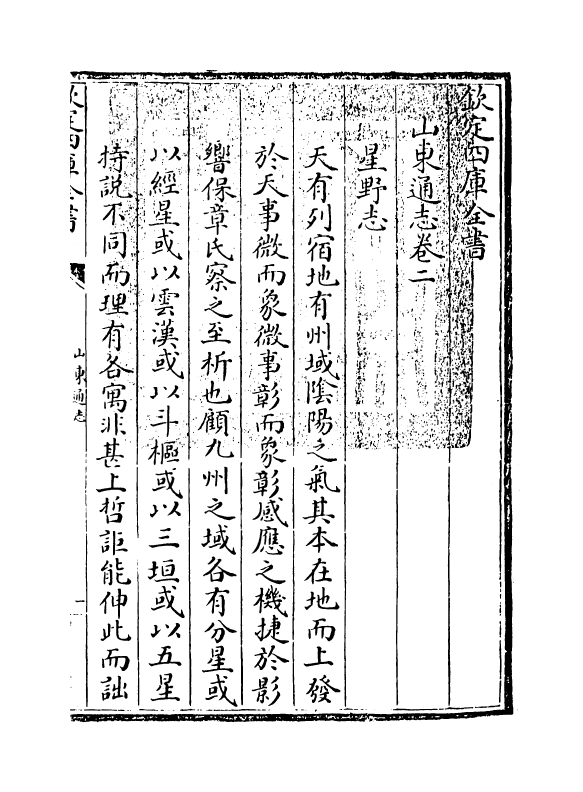 欽定四庫全書
山東通志卷二
星野志
天有列宿地有州域陰陽之氣其本在地而上發
於天事微而象微事彰而象彰感應之機捷於影
響保章氏察之至析也顧九州之域各有分星或
以經星或以雲漢或以斗樞或以三垣或以五星
持說不同而理有各寓非甚上哲詎能伸此而詘
欽定四庫全書
山東通志
一